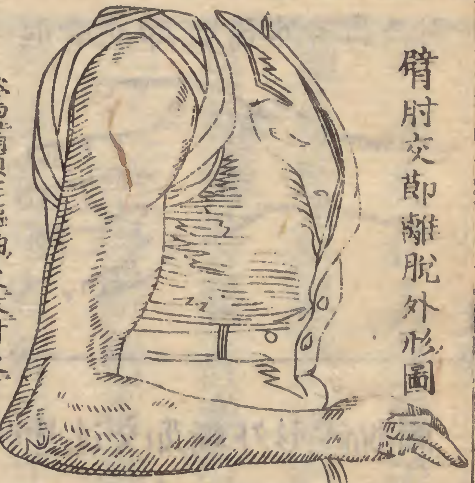 臂肘交節離脫外形圖